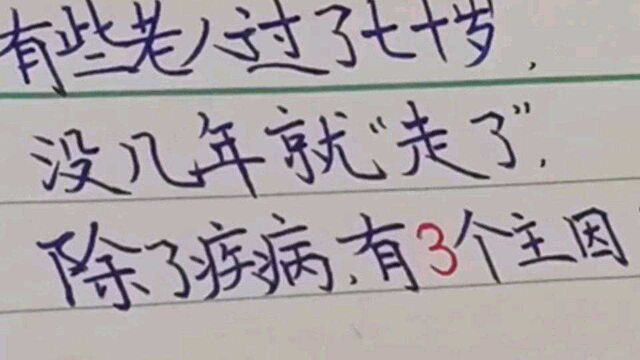 有些老人过了七十岁,
没几年就“走了”,
除了疾病,有3个主因